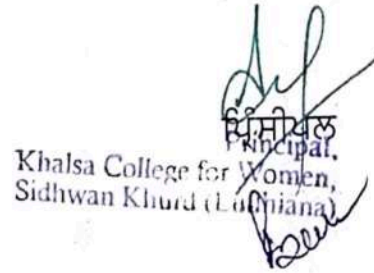 ਪ੍ਰਿੰਸੀਪਲ
Principal,
Khalsa College for Women,
Sidhwan Khurd (Ludhiana)